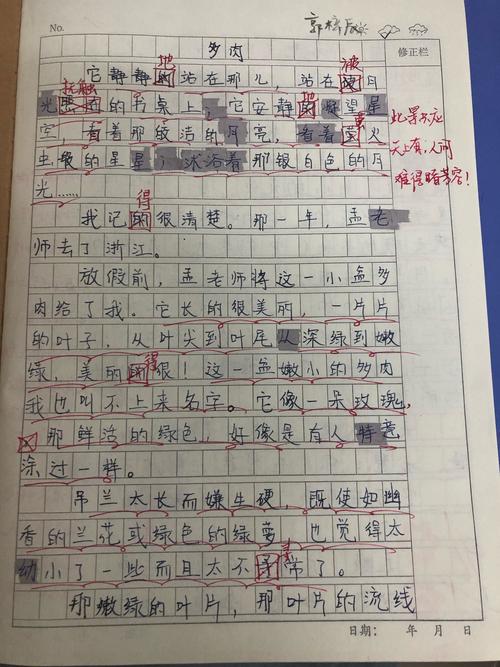 No.
修正栏
多肉
地 被
它静静的站在那儿,站在 月
抚触
光 的书桌上,它安静的凝望星
空,看着那皎洁的月亮,看着萤火
虫般的星星,沐浴着那银白色的月
光……
此景只应
天上有,人间
难得暗芳容!
得
我记的很清楚。那一年,孟老
师去了浙江。
放假前,孟老师将这一小盆多
肉给了我。它长的很美丽,一片片
的叶子,从叶尖到叶尾从深绿到嫩
得
绿,美的的很!这一盆嫩小的多肉
我也叫不上来名字。它像一朵玫瑰,
那鲜活的绿色,好像是有人特意
涂过一样。
吊兰太长而嫌生硬,既使如幽
香的兰花或绿色的绿萝 也觉得太
素
幼小了一些而且太不 常了。
那嫩绿的叶片,那叶片的流线
日期: 年 月 日